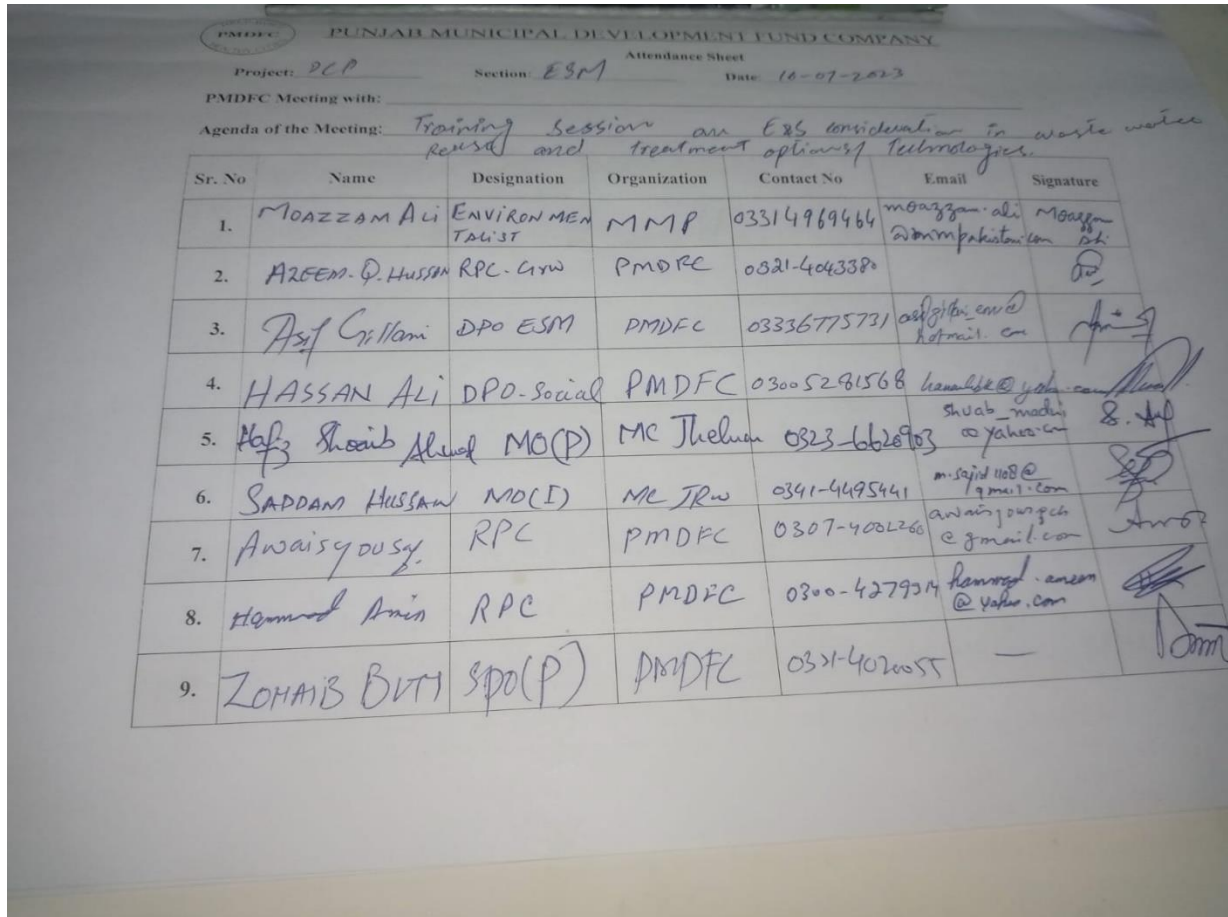 PMDFC PUNJAB MUNICIPAL DEVELOPMENT FUND COMPANY
Attendance Sheet
Project: PCP Section: ESM Date: 10-07-2023
PMDFC Meeting with:
Agenda of the Meeting: Training Session on E&S consideration in waste water
Reuse and treatment options/ Technologies.
Sr. No Name Designation Organization Contact No Email Signature
1. MOAZZAM ALi ENVIRONMEN MMP 03314969464 moazzam.ali Moazzam
TALIST @mmpakistan.com Ali
2. AZEEM.Q.HUSSAN RPC-Grw 0321-4043380
3. Asif Gillani DPO ESM PMDFC 03336775731
hotmail.com
4. HASSAN ALi DPO-Social PMDFC 03005281568
5. Hafiz Shoaib Ahmed MO(P) MC Jhelum 0323-6620903
@yahoo.com
6. SADDAM HUSSAIN MO(I) 0341-4495441 m.sajid1108@
gmail.com
7. Awais yousaf RPC PMDFC 0307-4002260
@gmail.com
8. Hammad Amin RPC PMDFC hammad.ameen
@yahoo.com
9. ZOHAIB BUTT SPO(P) PMDFC —